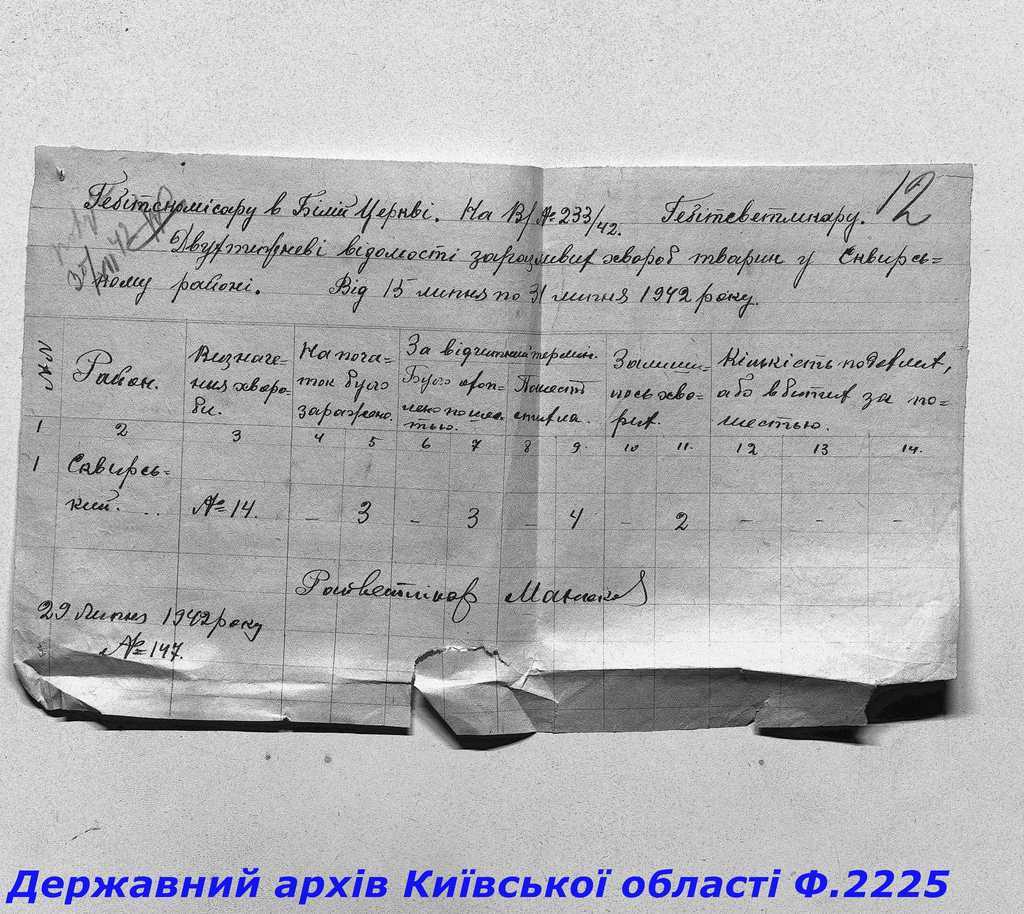 12
Гебітскомісару в Білій Церкві. На В/№ 233/42. Гебітсветлікару.
Двутижневі відомості заразливих хвороб тварин у Сквирсь=
кому районі. Від 15 липня по 31 липня 1942 року.
№№ Район. Визначе= ння хворо= би. На поча= ток було заражено. За відчитний термін. Було охоп= лено пошес= тью. Пошесть стихла. Залиши= лось хво= рих. Кількість подохлих, або вбитих за по= шестью.
1 2 3 4 5 6 7 8 9. 10 11. 12 13 14.
1 Сквирсь=
кий. . . . №14. – 3 – 3 – 4 – 2 – – –
Райветлікар
29 липня 1942 року
№ 147.
Державний архів Київської області Ф.2225